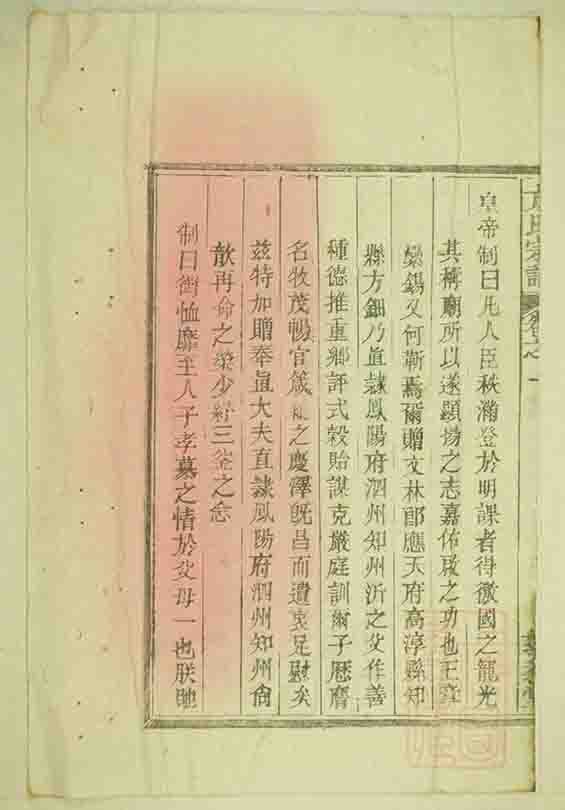 皇帝制曰凡人臣秩滿登於明課者得徼國之寵光
其禰廟所以遂顯揚之志嘉佑啟之功也王章
錫又何靳焉爾贈文林郎應天府高淳縣知
縣方鈿乃直隸鳳陽府泗州知州沂之父作善
種德推重鄉評式穀貽謀克嚴庭訓爾子歷膺
名牧茂暢官箴之慶澤既昌而遺哀足慰矣
茲特加贈奉直大夫直隸鳳陽府泗州知州尚
歆再命之榮少紓三釜之念
制曰銜恤靡至人子孝慕之情於父母一也朕貤
方氏宗譜